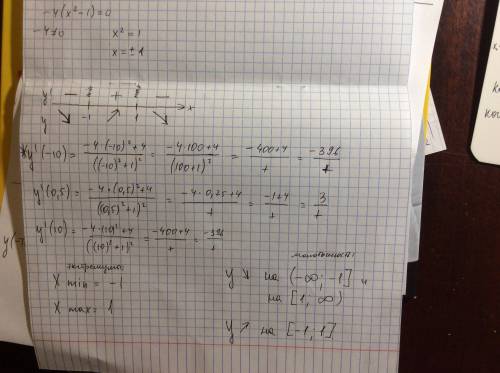 -4(x²-1)=0
-4≠0 x²=1
x=±1
y' − + − x
y ↘ -1 ↗ 1 ↘
y'(-10) = (-4·(-10)²+4)/((-10)²+1)² = (-4·100+4)/(100+1)² = (-400+4)/+ = -396/+
y'(0,5) = (-4·(0,5)²+4)/((0,5)²+1)² = (-4·0,25+4)/+ = (-1+4)/+ = 3/+
y'(10) = (-4·(10)²+4)/((10)²+1)² = (-400+4)/+ = -396/+
экстремумы:
X min = -1
X max = 1
монотонность:
y ↘ на (-∞; -1] и
на [1; ∞)
y ↗ на [-1; 1]